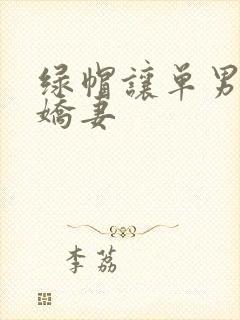 绿帽讓单男
嬌妻
李荔